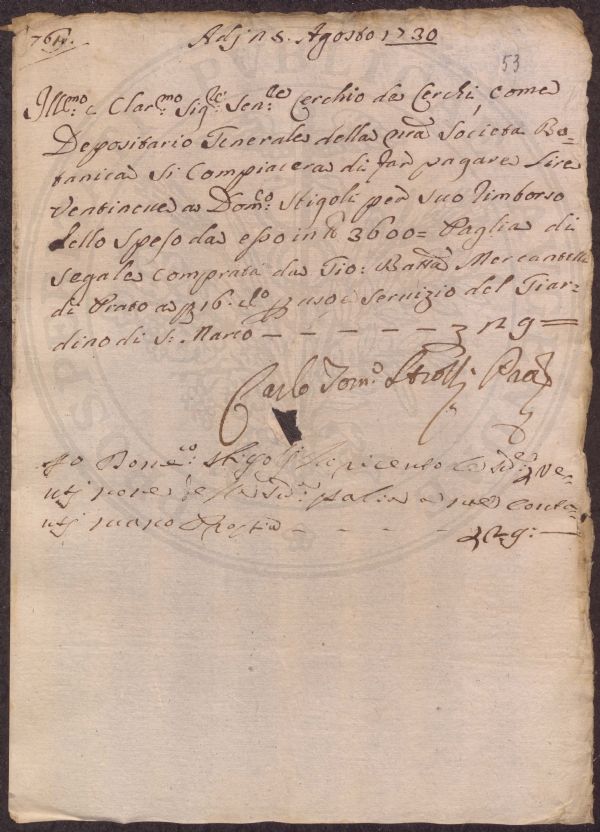 Adj n 8. Agosto 1730
53
Ill:mo e Clar:mo Sig:re Sen:re Cerchio de Cerchi, come
Depositario Generale della nr̃a Società Bo=
tanica si compiacerà di far pagare Lire
Ventinoue a Dom:co Stigoli per suo rimborso
dello speso da esso in 3600= Paglia di
Segale comprata da Gio: Batta Mercatelli
di Prato a 16. uso e servizio del Giar=
dino di S: Marco — — — — — 29=
Carlo Tom:o Strozzi
Io Domenco Stigoli ò riceuto le Ve=
ntj noue per la paglia Conta=
ntj mano Propria — — — — — 29:—